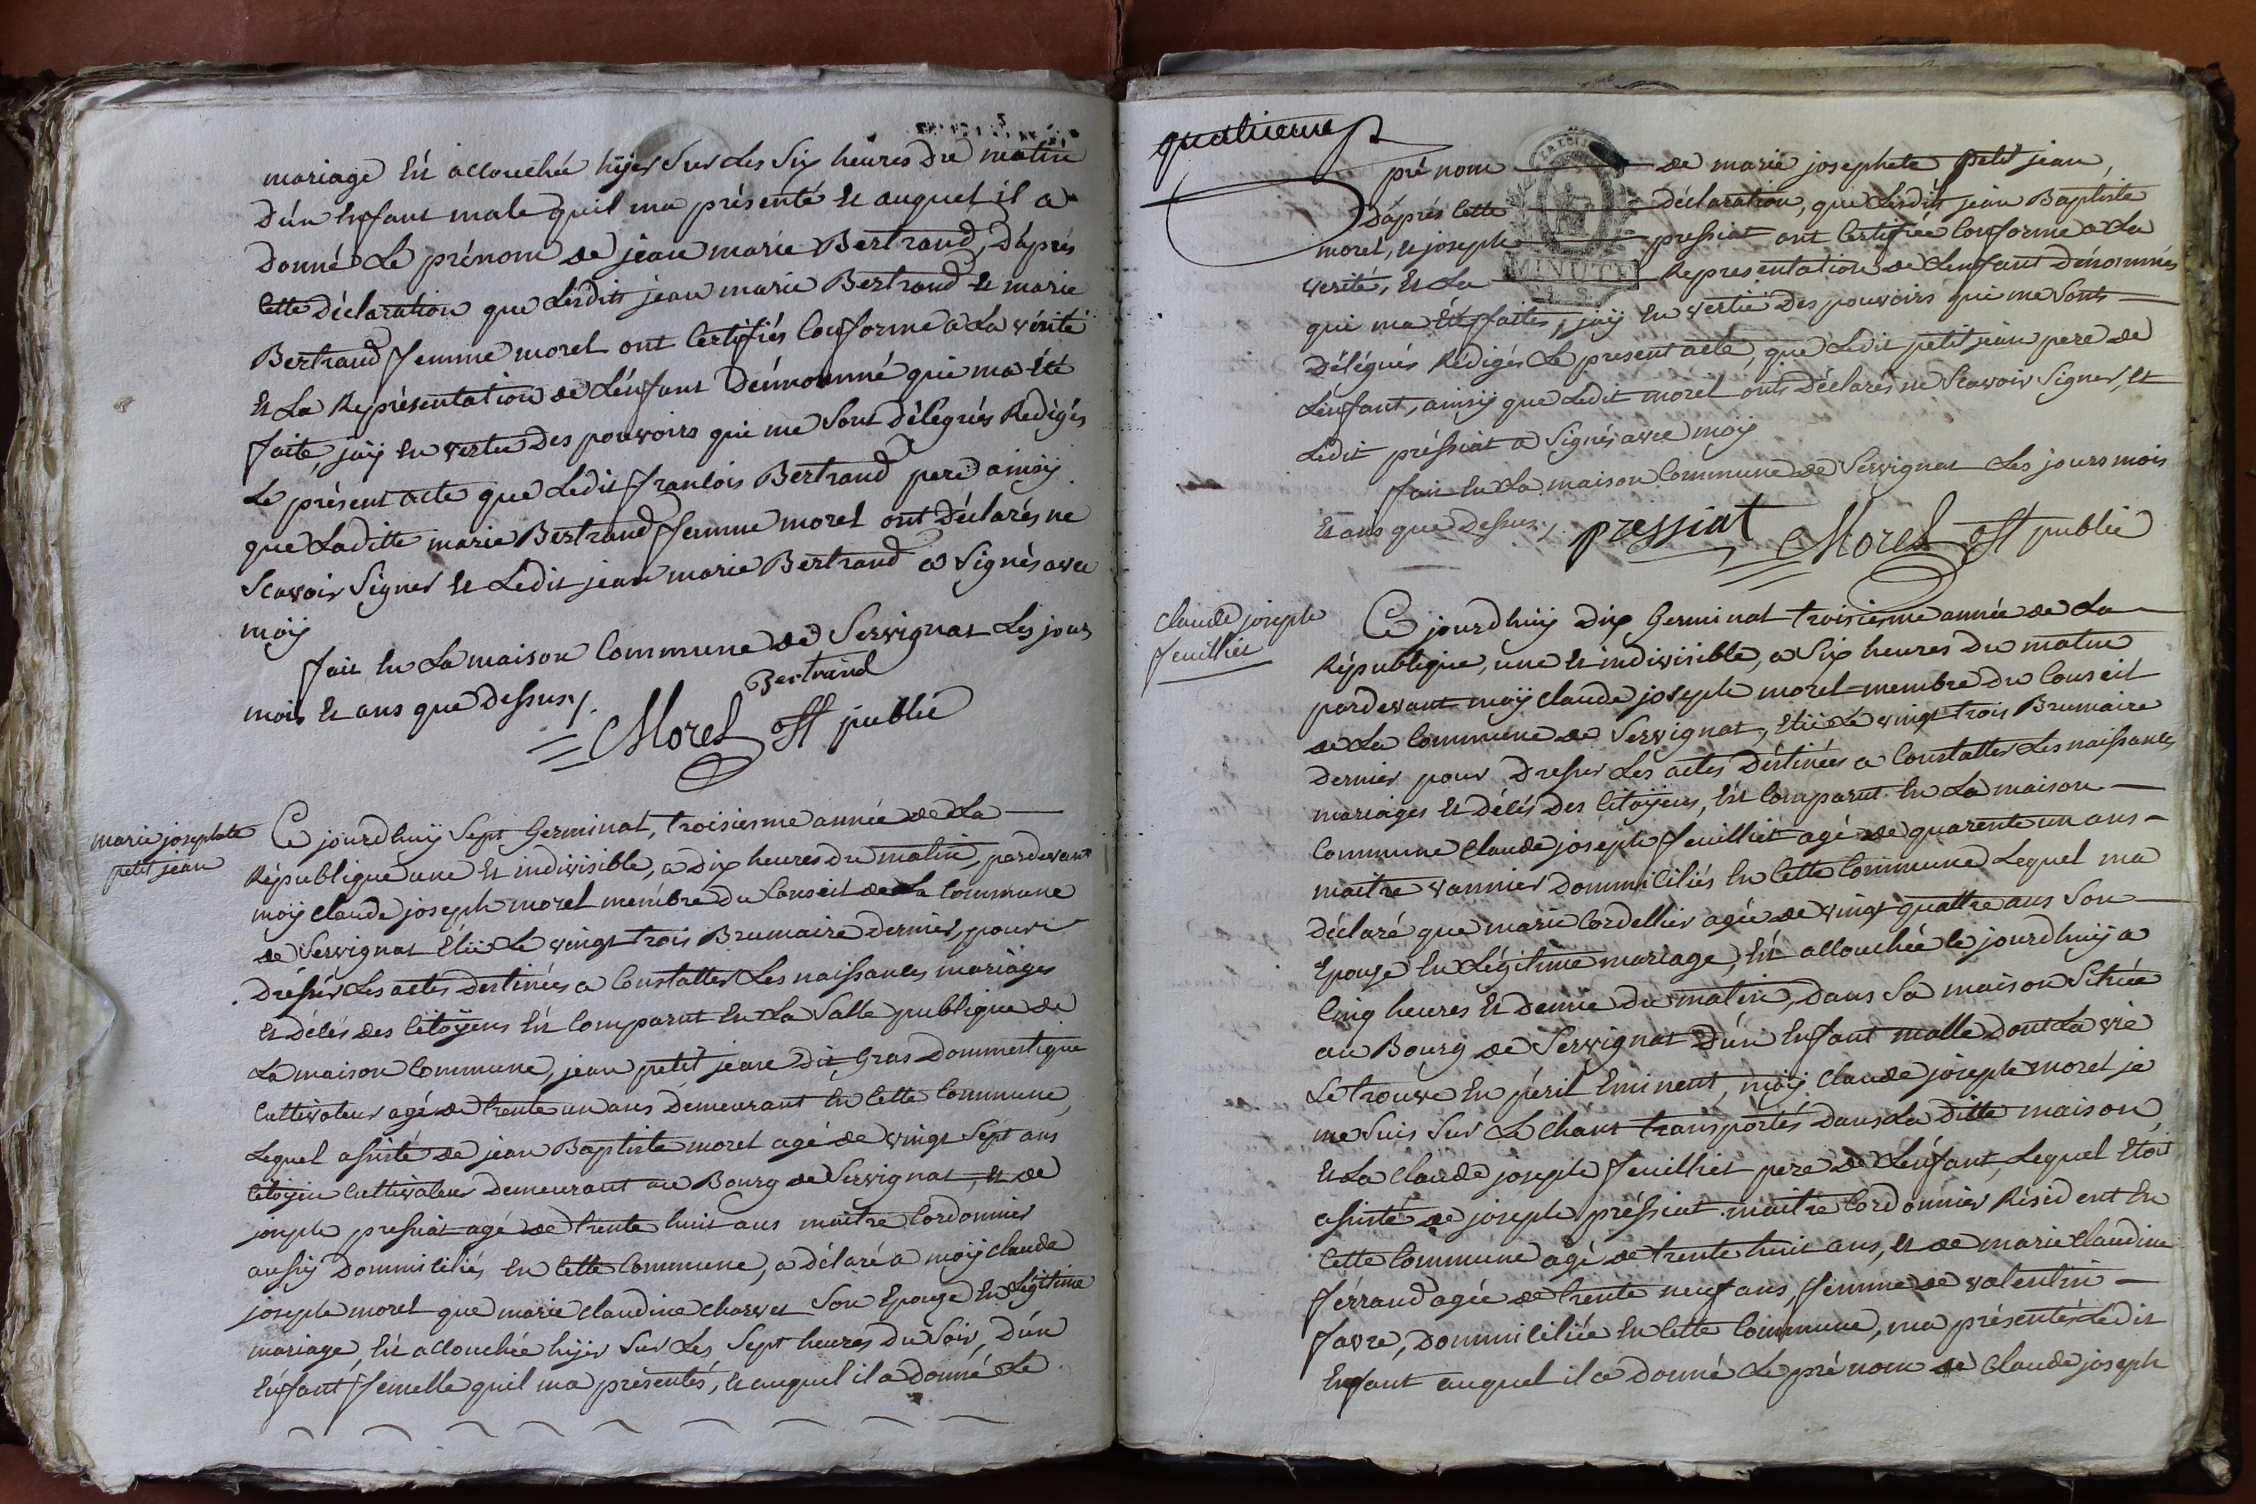 mariage Est accouchée hyer sur Les Six heures du matin
D'un Enfant male quil ma présenté Et auquel il a
donné Le prénom de jean marie Bertrand, Dáprés
Cette déclaration que Lesdits jean marie Bertrand Et marie
Bertrand femme morel ont Certifiés Conforme a La vérité
Et La Représentation de L'énfant Dénommé qui ma Eté
faite, jaÿ En vertu des pouvoirs qui me Sont délégués Redigés
Le présent acte que Ledit francois Bertrand pere ainsÿ
que Laditte marie Bertrand femme morel ont déclarés ne
Scavoir Signer Et Ledit jean marie Bertrand a Signés avec
moÿ
fait En La maison Commune de Servignat Les jours
mois Et ans que dessus
Bertrand
Morel off public
marie josephete
petit jean
Ce jourdhuÿ Sept Germinal, troisiesme année de La
République une Et indivisible, a dix heures du matin, pardevant
moÿ Claude joseph morel membre du Conseil de La Commune
de Servignat Elü Le vingt trois Brumaire dernier, pour
dresser Les actes destinées a Constatter Les naissances mariages
Et décés des Citoÿens Est Comparut En La Salle publique de
La maison Commune, jean petit jean dit Gras Dommestique
Cultivateur agé de trente un ans demeurant En Cette Commune,
Lequel assisté de jean Baptiste morel agé de vingt Sept ans
Citoÿen Cultivateur demeurant au Bourg de Servignat, Et de
joseph pressiat agé de trente huit ans maitre Cordonnier
aussÿ Dommiciliés En Cette Commune, a déclaré a moÿ Claude
joseph morel que marie Claudine Charvet Son Epouze En Légitime
mariage, Est accouchée hÿer Sur Les Sept heures du Soir, D'un
Enfant femelle quil ma présentés, Et auquel il a donné Le
quatrieme
pré nom de marie josephete petit jean
Dáprés Cette déclaration, que Lesdits jean Baptiste
morel, Et joseph pressiat ont Certifiée Conforme a La
verité, Et La Representation de Lenfant Dénommés
MINUTE
qui ma Eté faites, jaÿ En vertu des pouvoirs qui me Sont
délégués Rédigés Le present acte, que Ledit petit jean pere de
Lénfant, ainsÿ que Ledit morel onts déclarés ne Scavoir Signer, Et
Ledit préssiat a Signés avec moÿ
fait En La maison Commune de Servignat Les jours mois
Et ans que dessus
pressiat Morel off public
Claude joseph
feuillier
Ce jourdhuÿ dix Germinal troisiesme année de La
République, une Et indivisible, a Six heures du matin
pardevant moÿ Claude joseph morel membre du Conseil
de La Commune de Servignat, Elü Le vingt trois Brumaire
dernier pour dresser Les actes déstinées a Constatter Les naissances
mariages Et décés des Citoÿens, Est Comparut En La maison
Commune Claude joseph feuilliet agé de quarente un ans
maitre vannier Dommiciliés En Cette Commune Lequel ma
déclaré que marie Cordellier agée de vingt quattre ans Son
Epouze En Légitime mariage, Est accouchée Ce jourdhuÿ a
Cinq heures Et demie du matin, dans Sa maison Située
au Bourg de Servignat D'ún Enfant malle dont La vie
Se trouve En péril Eminent, moÿ Claude joseph morel je
me Suis Sur Le Chant transportés dans La ditte maison,
Et La Claude joseph feuilliet pere de Lénfant, Lequel Etoit
assisté de joseph préssiat maitre Cordonnier Résident En
Cette Commune agé de trente huit ans, Et de marie Claudine
férraud agée de trente neuf ans, femme de valentin
favre, Dommiciliée En Cette Commune, ma présentés Ledit
Enfant auquel il a donné Le pré nom de Claude joseph